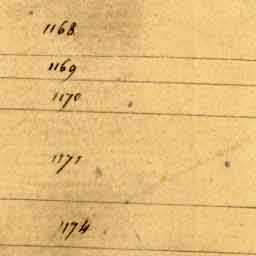 1168
1169
1170
1171
1174